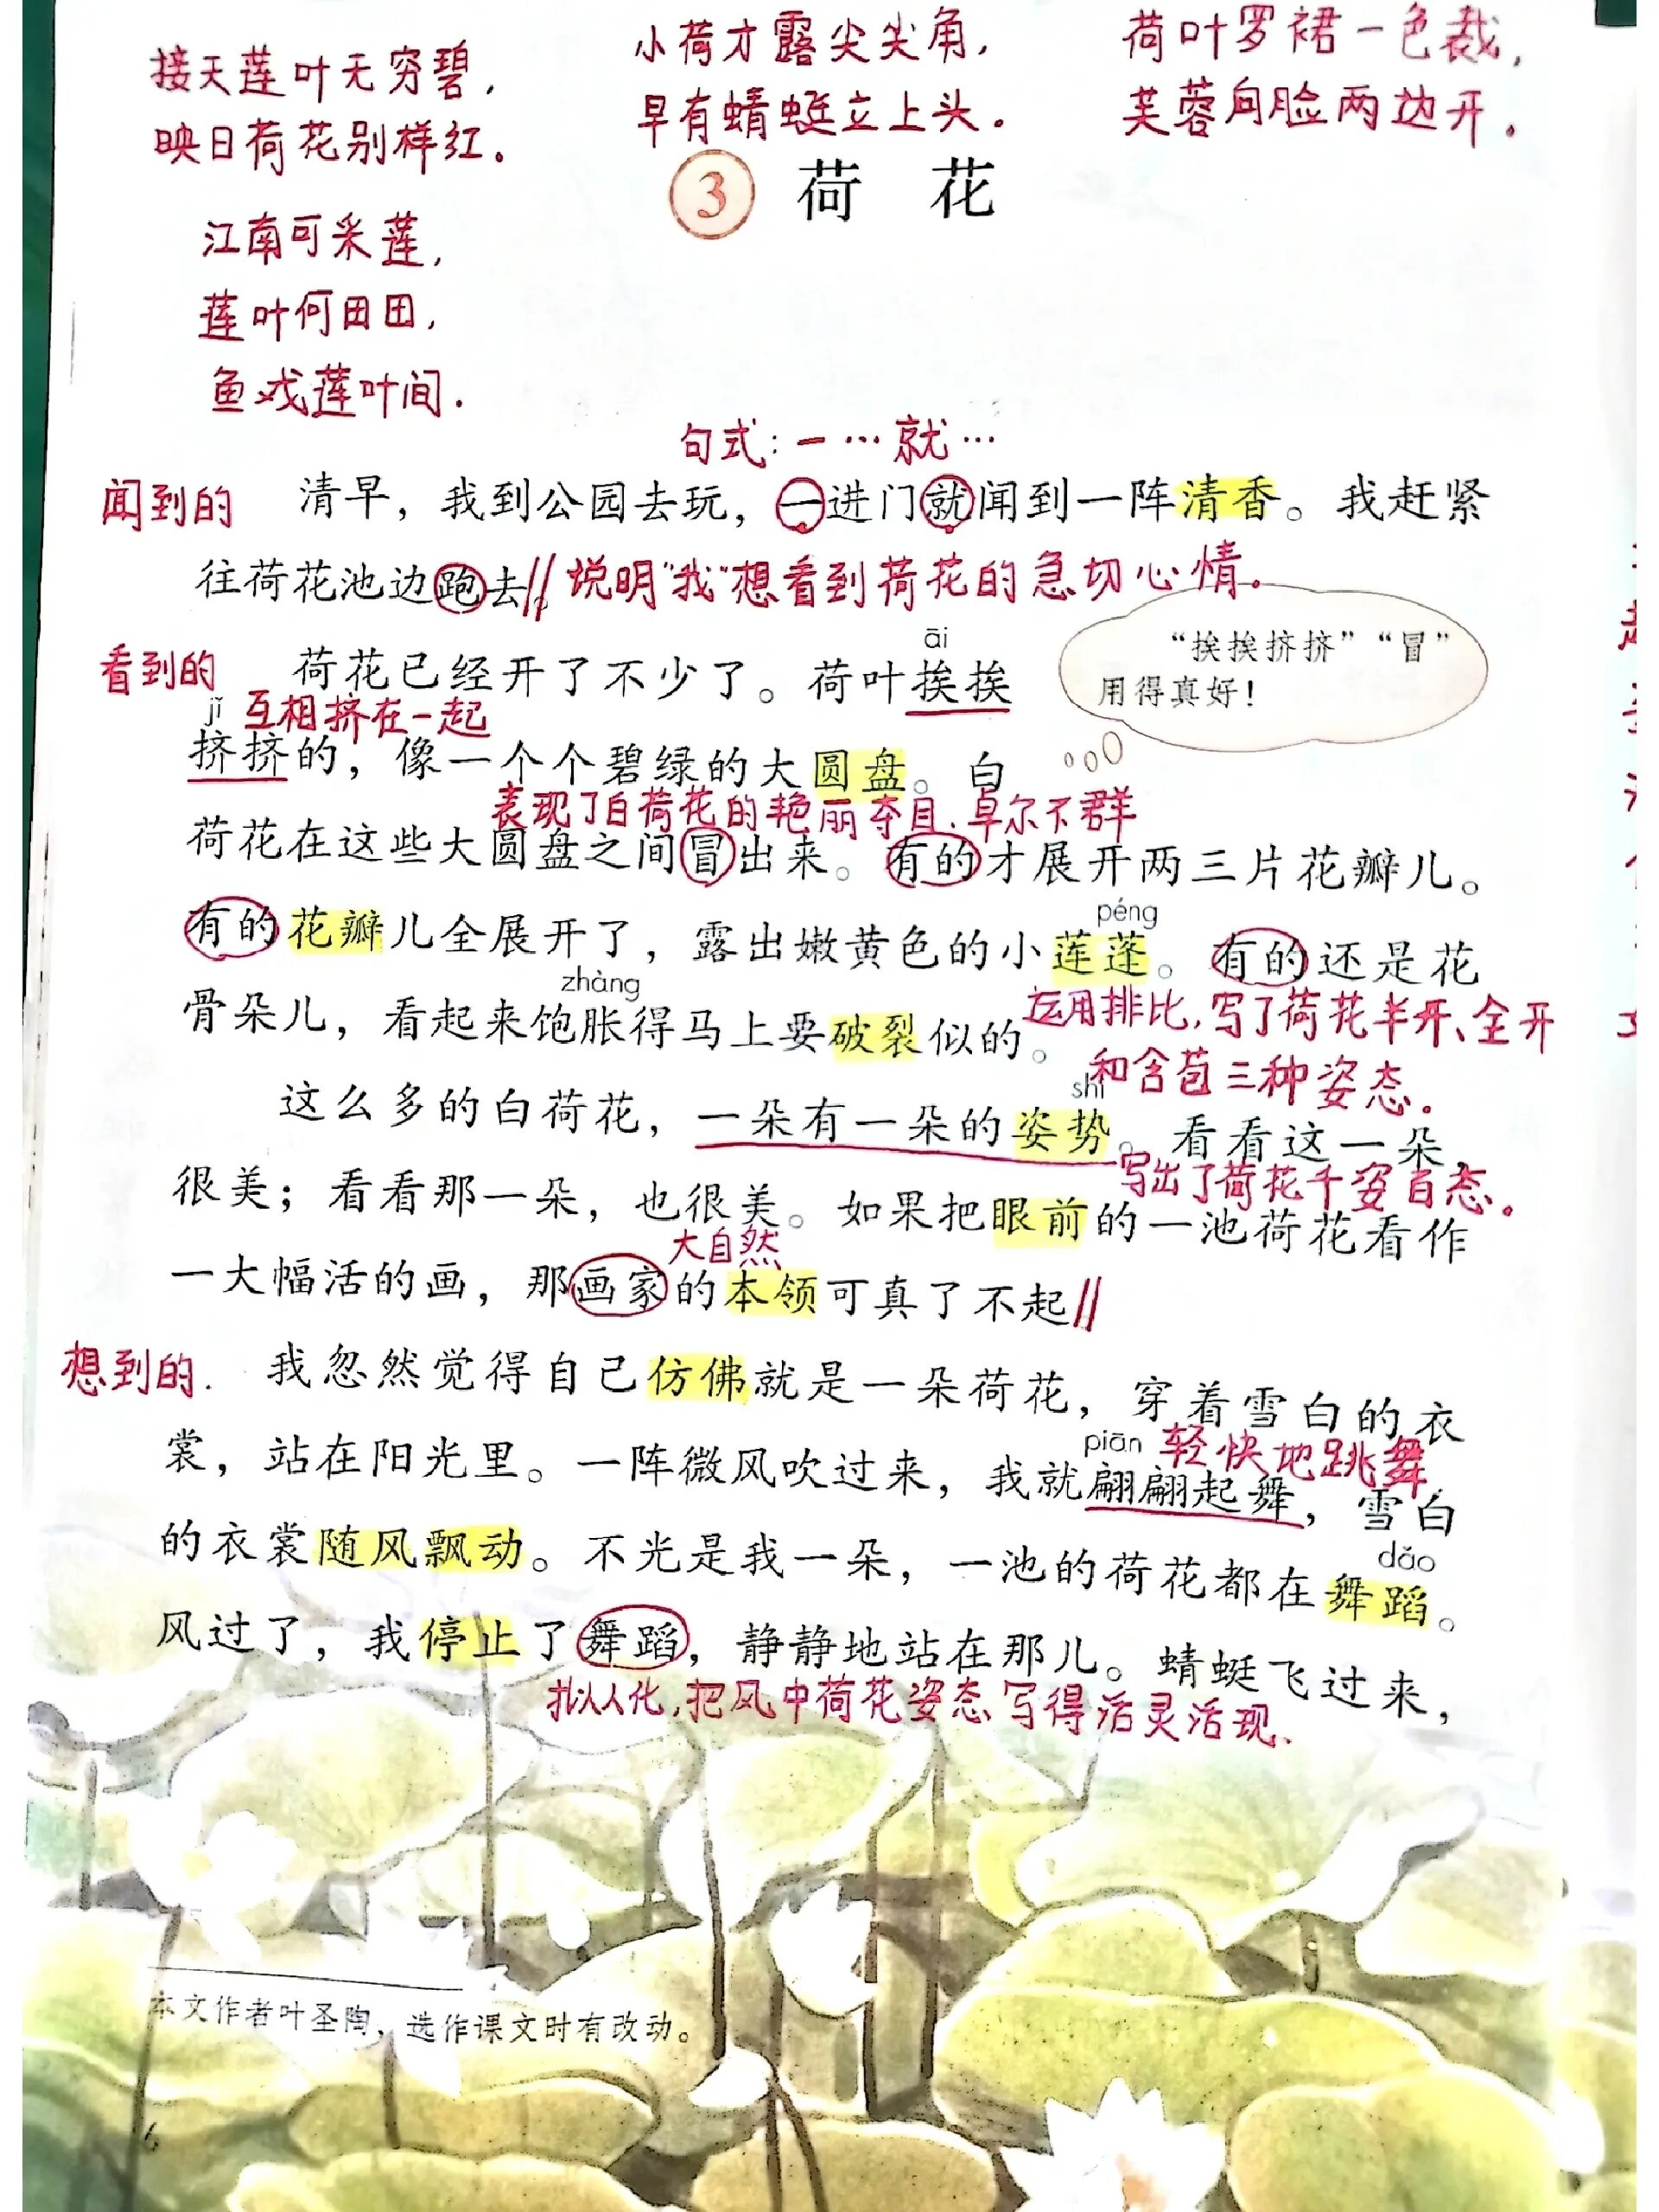 接天莲叶无穷碧，
映日荷花别样红。
小荷才露尖尖角，
早有蜻蜓立上头。
荷叶罗裙一色裁，
芙蓉向脸两边开。
3 荷 花
江南可采莲，
莲叶何田田，
鱼戏莲叶间.
句式：一…就…
闻到的
清早，我到公园去玩，一进门就闻到一阵清香。我赶紧
往荷花池边跑去。
说明“我”想看到荷花的急切心情.
“挨挨挤挤”“冒”
用得真好！
看到的
āi
荷花已经开了不少了。荷叶挨挨
jǐ 互相挤在一起
挤挤的，像一个个碧绿的大圆盘。白
表现了白荷花的艳丽夺目、卓尔不群
荷花在这些大圆盘之间冒出来。有的才展开两三片花瓣儿。
péng
有的花瓣儿全展开了，露出嫩黄色的小莲蓬。有的还是花
zhàng
骨朵儿，看起来饱胀得马上要破裂似的。
运用排比，写了荷花半开、全开
和含苞三种姿态.
shì
这么多的白荷花，一朵有一朵的姿势。看看这一朵，
写出了荷花千姿百态.
很美；看看那一朵，也很美。如果把眼前的一池荷花看作
大自然
一大幅活的画，那画家的本领可真了不起
想到的.
我忽然觉得自己仿佛就是一朵荷花，穿着雪白的衣
piān 轻快地跳舞
裳，站在阳光里。一阵微风吹过来，我就翩翩起舞，雪白
dǎo
的衣裳随风飘动。不光是我一朵，一池的荷花都在舞蹈。
风过了，我停止了舞蹈，静静地站在那儿。蜻蜓飞过来，
拟人化，把风中荷花姿态写得活灵活现.
本文作者叶圣陶，选作课文时有改动。
6